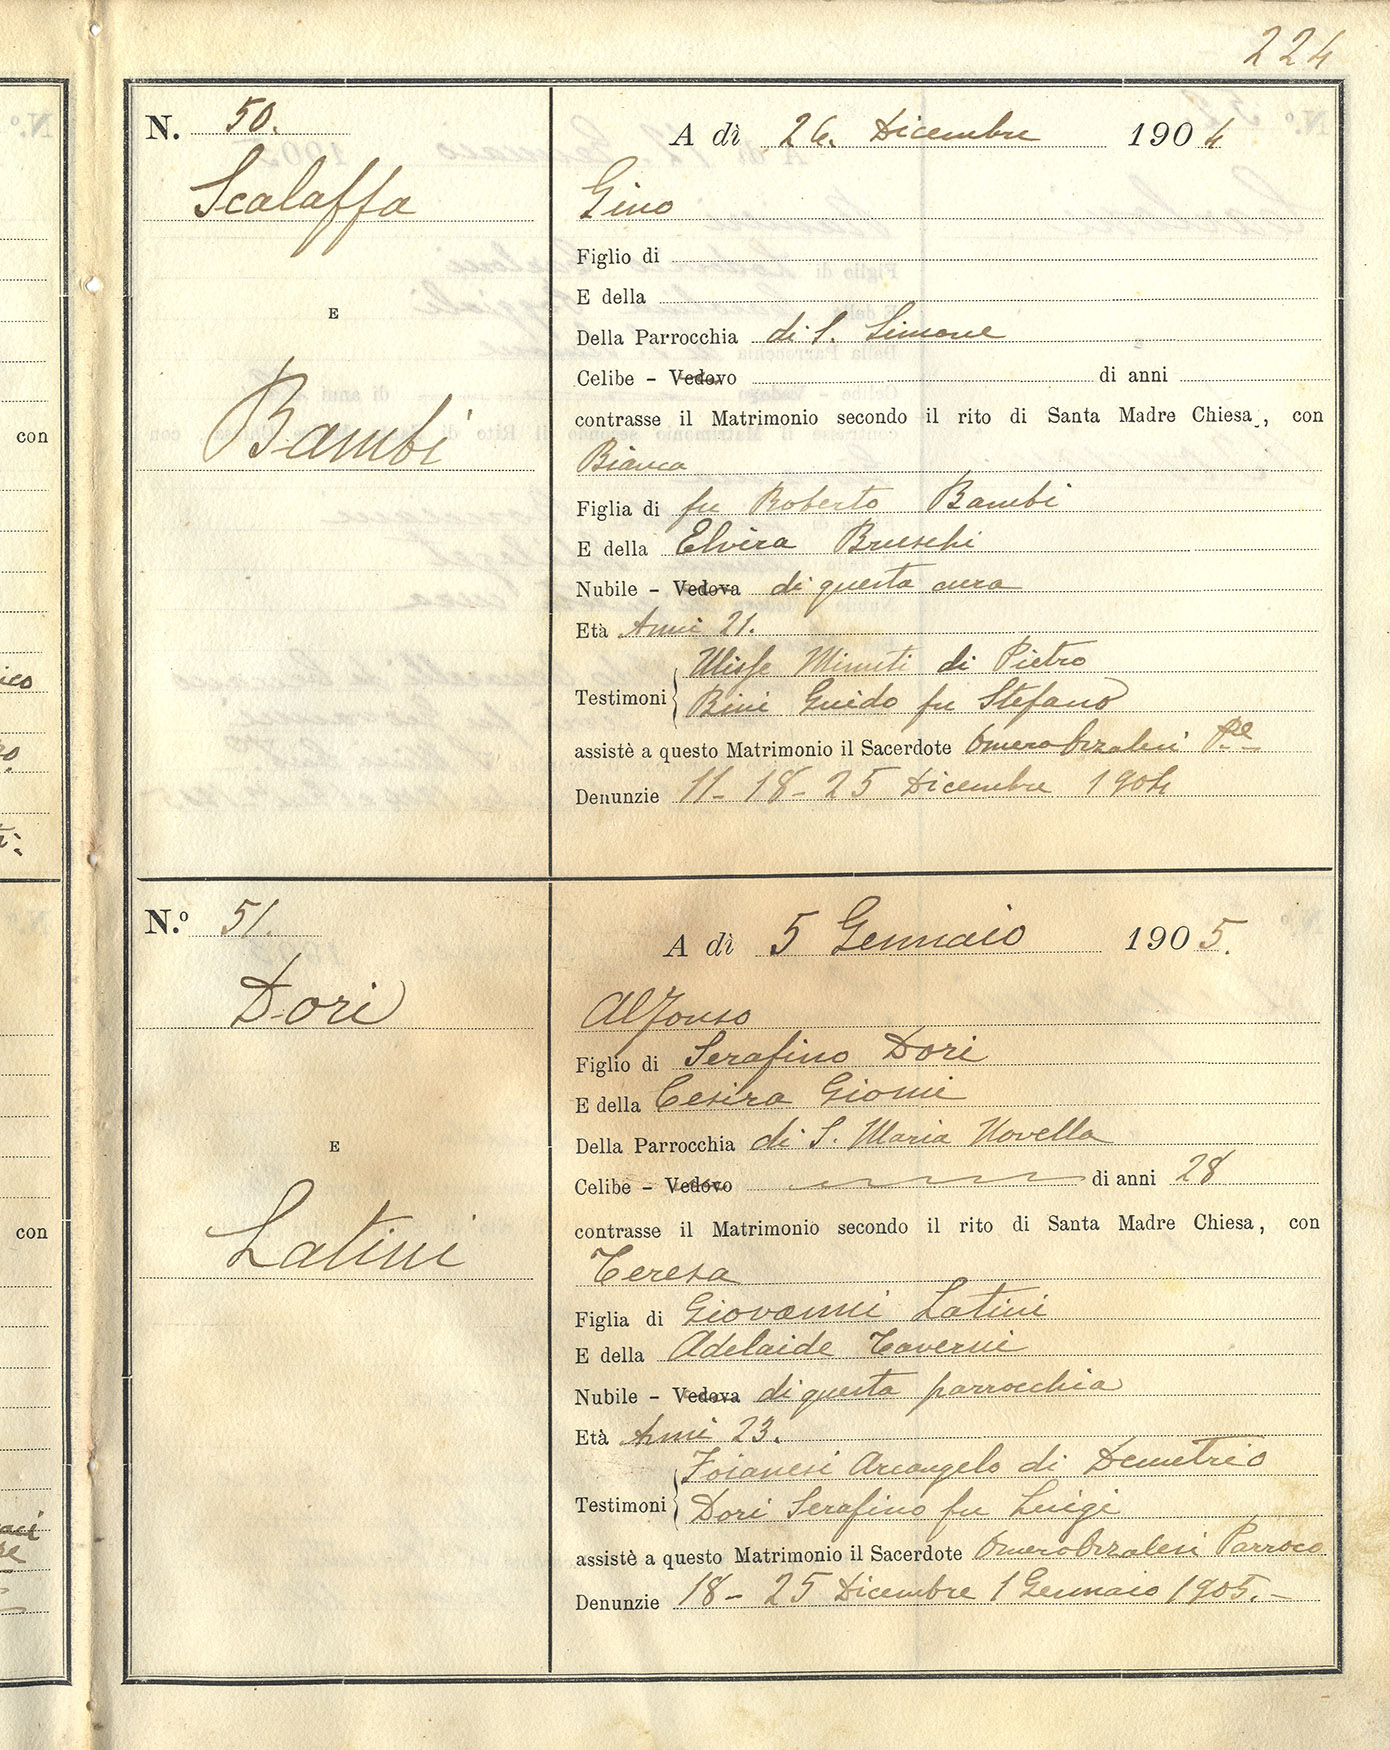 224
N. 50.
Scalaffa
E
Bambi
A dì 26. Dicembre 1904
Gino
Figlio di
E della
Della Parrocchia di S. Simone
Celibe – Vedovo di anni
contrasse il Matrimonio secondo il rito di Santa Madre Chiesa, con
Bianca
Figlia di fu Roberto Bambi
E della Elvira Bruschi
Nubile – Vedova di questa cura
Età Anni 21.
Ulisse Minuti di Pietro
Testimoni
Bini Guido fu Stefano
assistè a questo Matrimonio il Sacerdote Omero Orzalesi
Denunzie 11 – 18 – 25 Dicembre 1904
N.º 51.
Dori
E
Latini
A dì 5 Gennaio 1905.
Alfonso
Figlio di Serafino Dori
E della Cesira Giomi
Della Parrocchia di S. Maria Novella
Celibe – Vedovo di anni 28
contrasse il Matrimonio secondo il rito di Santa Madre Chiesa, con
Teresa
Figlia di Giovanni Latini
E della Adelaide Taverni
Nubile – Vedova di questa parrocchia
Età Anni 23.
Foianesi Arcangelo di Demetrio
Testimoni
Dori Serafino fu Luigi
assistè a questo Matrimonio il Sacerdote Omero Orzalesi Parroco
Denunzie 18 – 25 Dicembre 1 Gennaio 1905. –
con
con